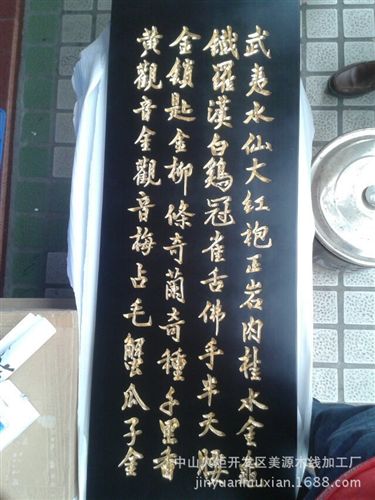 武夷水仙大紅袍正岩肉桂水金
鐵羅漢白鷄冠雀舌佛手半天
金鎖匙金柳條奇蘭奇種千里香
黃觀音金觀音梅占毛蟹瓜子金
中山火炬开发区美源木线加工厂
jinyuanmuxian.1688.com